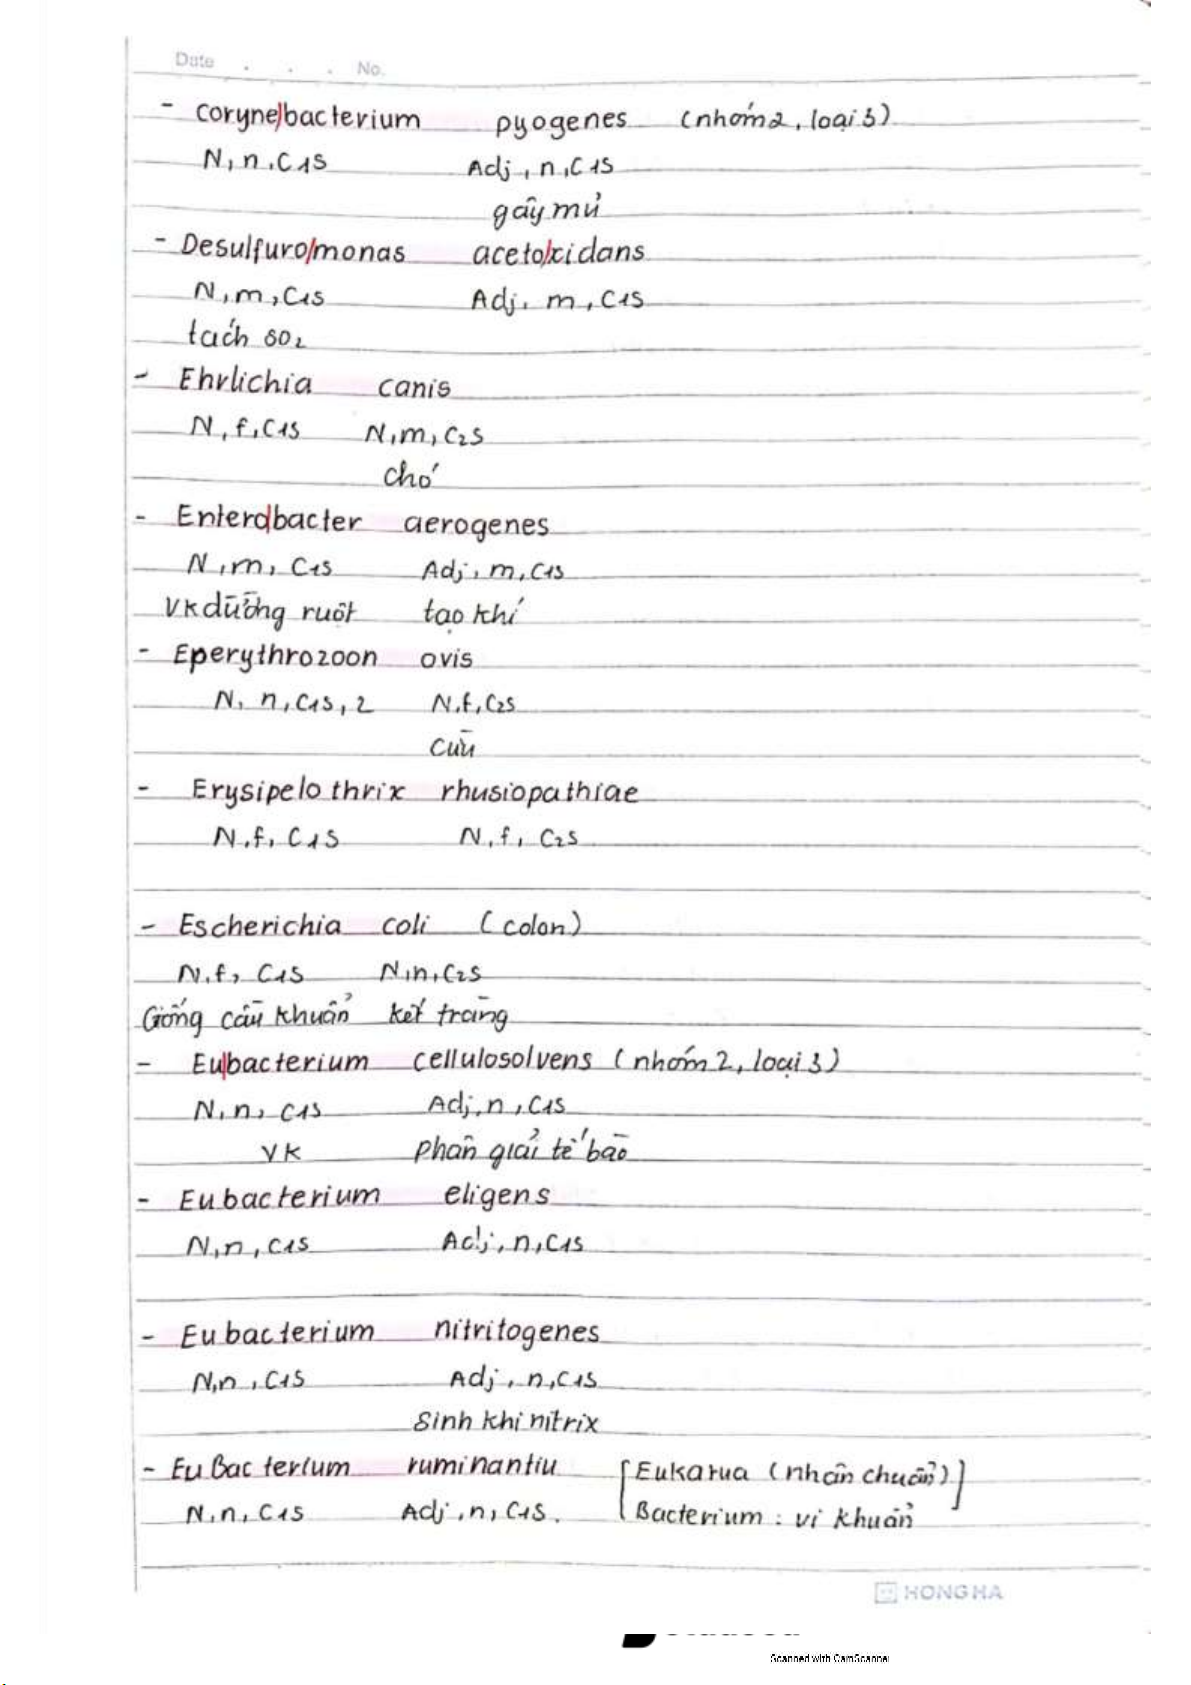 Date . . . No.
- Coryne/bacterium pyogenes (nhóm 2, loại 3)
N, n, C1S Adj, n, C1S
gây mủ
- Desulfuro/monas aceto/xidans
N, m, C1S Adj, m, C1S
tách SO2
- Ehrlichia canis
N, f, C1S N, m, C2S
chó
- Entero/bacter aerogenes
N, m, C1S Adj, m, C1S
VK đường ruột tạo khí
- Eperythrozoon ovis
N, n, C1S, 2 N, f, C2S
cừu
- Erysipelothrix rhusiopathiae
N, f, C1S N, f, C2S
- Escherichia coli (colon)
N, f, C1S N, n, C2S
Giống cầu khuẩn kết tràng
- Eu/bacterium cellulosolvens (nhóm 2, loại 3)
N, n, C1S Adj, n, C1S
VK phân giải tế bào
- Eubacterium eligens
N, n, C1S Adj, n, C1S
- Eubacterium nitritogenes
N, n, C1S Adj, n, C1S
Sinh khi nitrix
- EuBacterium ruminantiu [Eukarua (nhân chuẩn)]
N, n, C1S Adj, n, C1S. [Bacterium : vi khuẩn
HONG HA
Scanned with CamScanner